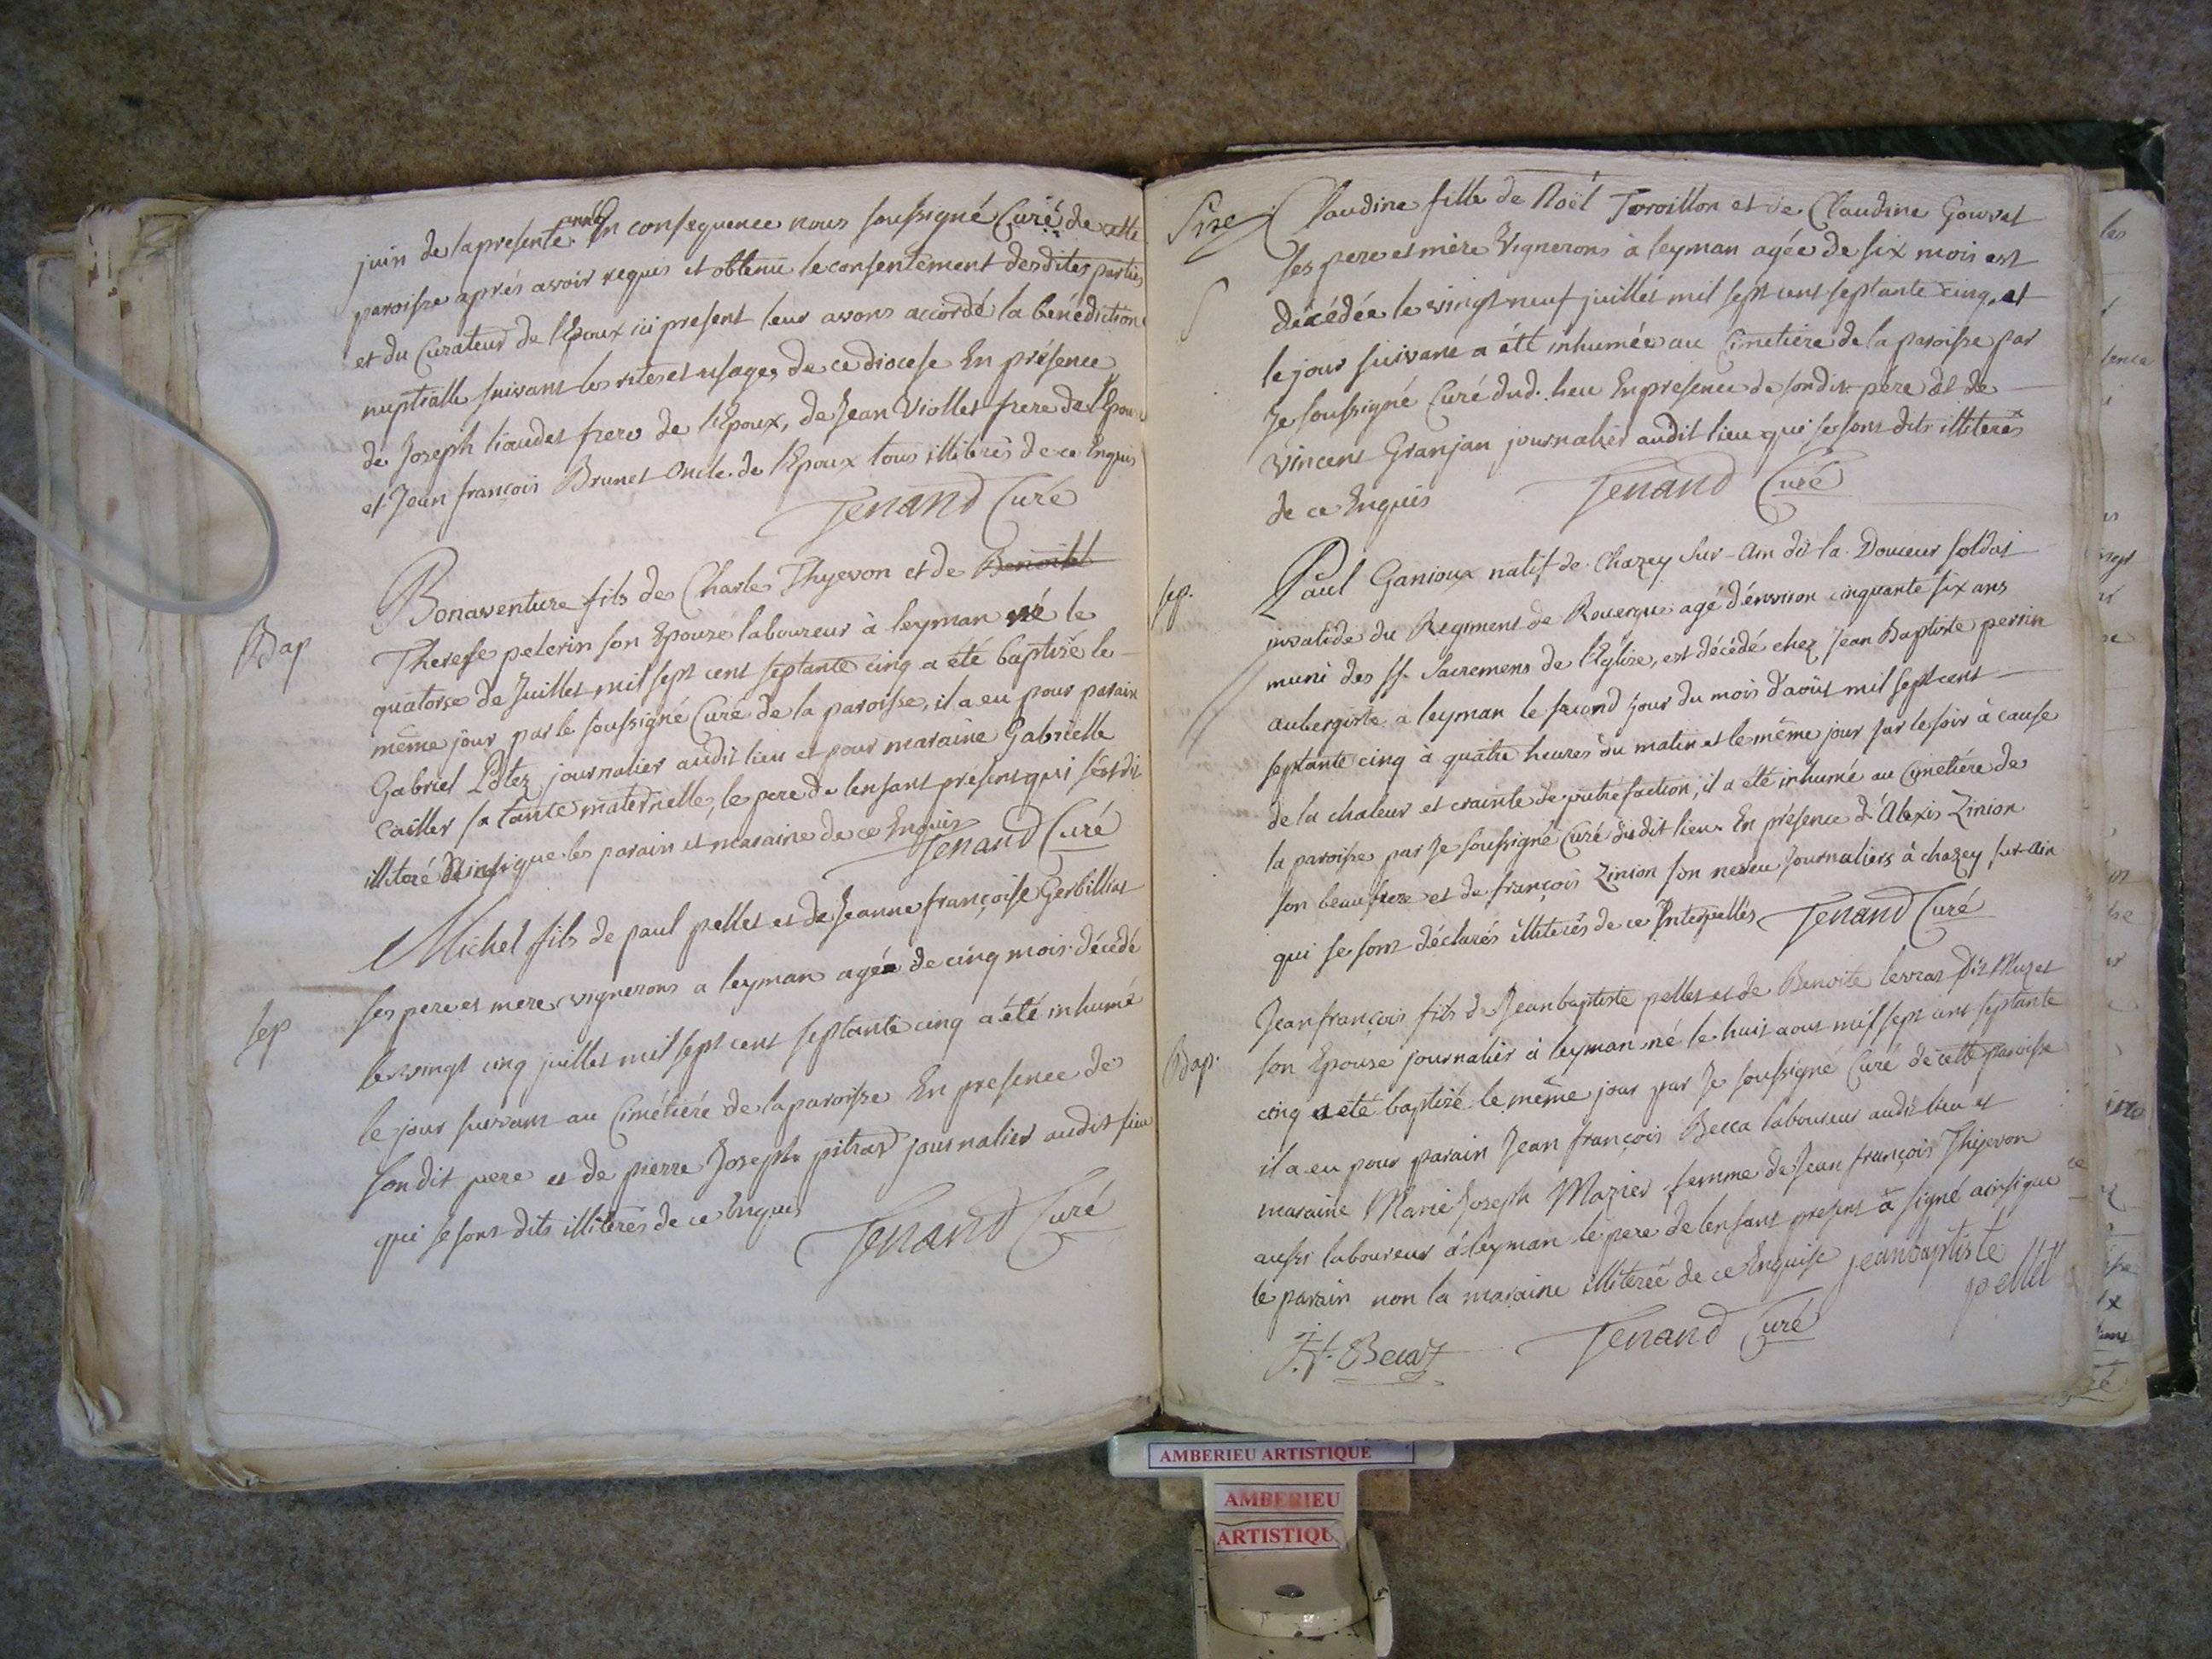 juin de la presente année En consequence nous soussigné Curé de cette
paroisse aprés avoir requis et obtenu le consentement desdites parties
et du Curateur de l'Epoux ici present leur avons accordé la bénédiction
nuptialle suivant les rites et usages de ce diocese En présence
de Joseph liaudet frere de l'Epoux, de Jean Viollet frere de l'Epouse
et Jean françois Brunet Oncle de l'Epoux tous illiterés de ce Enquis
Tenand Curé
Bap
Bonaventure fils de Charle Thyevon et de Benoitte
Therese pelerin son Epouze laboureur à leyman né le
quatorse de Juillet mil sept cent septante cinq a été baptizé le
même jour par le soussigné Curé de la paroisse, il a eu pour parain
Gabriel Potez journalier audit lieu et pour maraine Gabrielle
Cailler sa tante maternelle, le pere de lenfant présent qui s'est dit
illiteré ainsi que les parain et maraine de ce Enquis
Tenand Curé
sep
Michel fils de paul pellet et de Jeanne françoise Gerbilliat
ses pere et mere vignerons a leyman agée de cinq mois décédé
le vingt cinq juillet mil sept cent septante cinq a été inhumé
le jour suivant au Cimétiére de la paroisse En presence de
sondit pere et de pierre Joseph pitrat journalier audit lieu
qui se sont dits illiterés de ce Enquis
Tenand Curé
Claudine fille de Noël Toroillon et de Claudine Gouvet
ses pere et mère Vignerons à leyman agée de six mois est
décédée le vingt neuf juillet mil sept cent septante cinq, et
le jour suivant a été inhumée au Cimetiére de la paroisse par
Je soussigné Curé dud. lieu En présence de sondit pére et de
Vincent Granjan journalier audit lieu qui se sont dits illiterés
de ce Enquis
Tenand Curé
sep.
Paul Ganioux natif de Chazey sur-Ain dit la Douceur soldat
invalide du Regiment de Rouergue agé d'environ cinquante six ans
muni des SS. Sacremens de l'Eglize, est décédé chez Jean Baptiste perrin
aubergiste a leyman le second jour du mois d'août mil sept cent
septante cinq à quatre heures du matin et le même jour sur le soir à cause
de la chaleur et crainte de putréfaction, il a été inhumé au Cimetiére de
la paroisse par Je soussigné Curé dudit lieu En présence d'Alexis Zinion
son beaufrere et de françois Zinion son neveu Journaliers à chazey sur-Ain
qui se sont déclarés illiterés de ce Interpellés
Tenand Curé
Bap.
Jean françois fils de Jean baptiste pellet et de Benoite levrat dit Muzet
son Epouse journalier à leyman né le huit aout mil sept cent septante
cinq a été baptizé le même jour par Je soussigné Curé de cette paroisse
il a eu pour parain Jean françois Becca laboureur audit lieu et
maraine Marie Joseph Mazier femme de Jean françois Thijevon
aussi laboureur à leyman le pere de lenfant present a signé ainsi que
le parain non la maraine illiterée de ce Enquise
jean baptiste
pellet
J. f. Becat
Tenand Curé
AMBERIEU ARTISTIQUE
AMBERIEU
ARTISTIQU